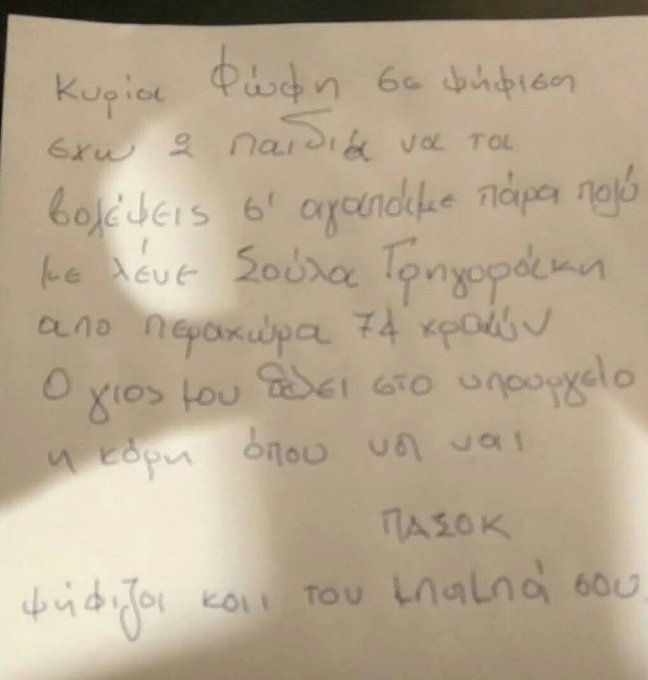 Κυρία Φώφη σε ψήφιση
εχω 2 παιδιά να τα
βολέψεις σ' αγαπάμε πάρα πολύ
με λένε Σούλα Γρηγοράκη
απο περαχώρα 74 χρανών
Ο γιος μου θελει στο υπουργείο
η κόρη όπου νά ναι
ΠΑΣΟΚ
ψήφιζα και του μπαμπά σου.